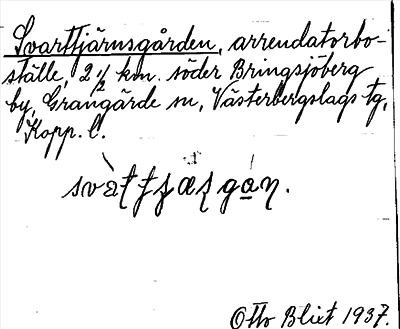 Svarttjärnsgården, arrendatorbo-
ställe, 2 ½ km. söder Bringsjöberg
by, Grangärde sn, Västerbergslags tg,
Kopp. l.
Otto Blixt 1937.